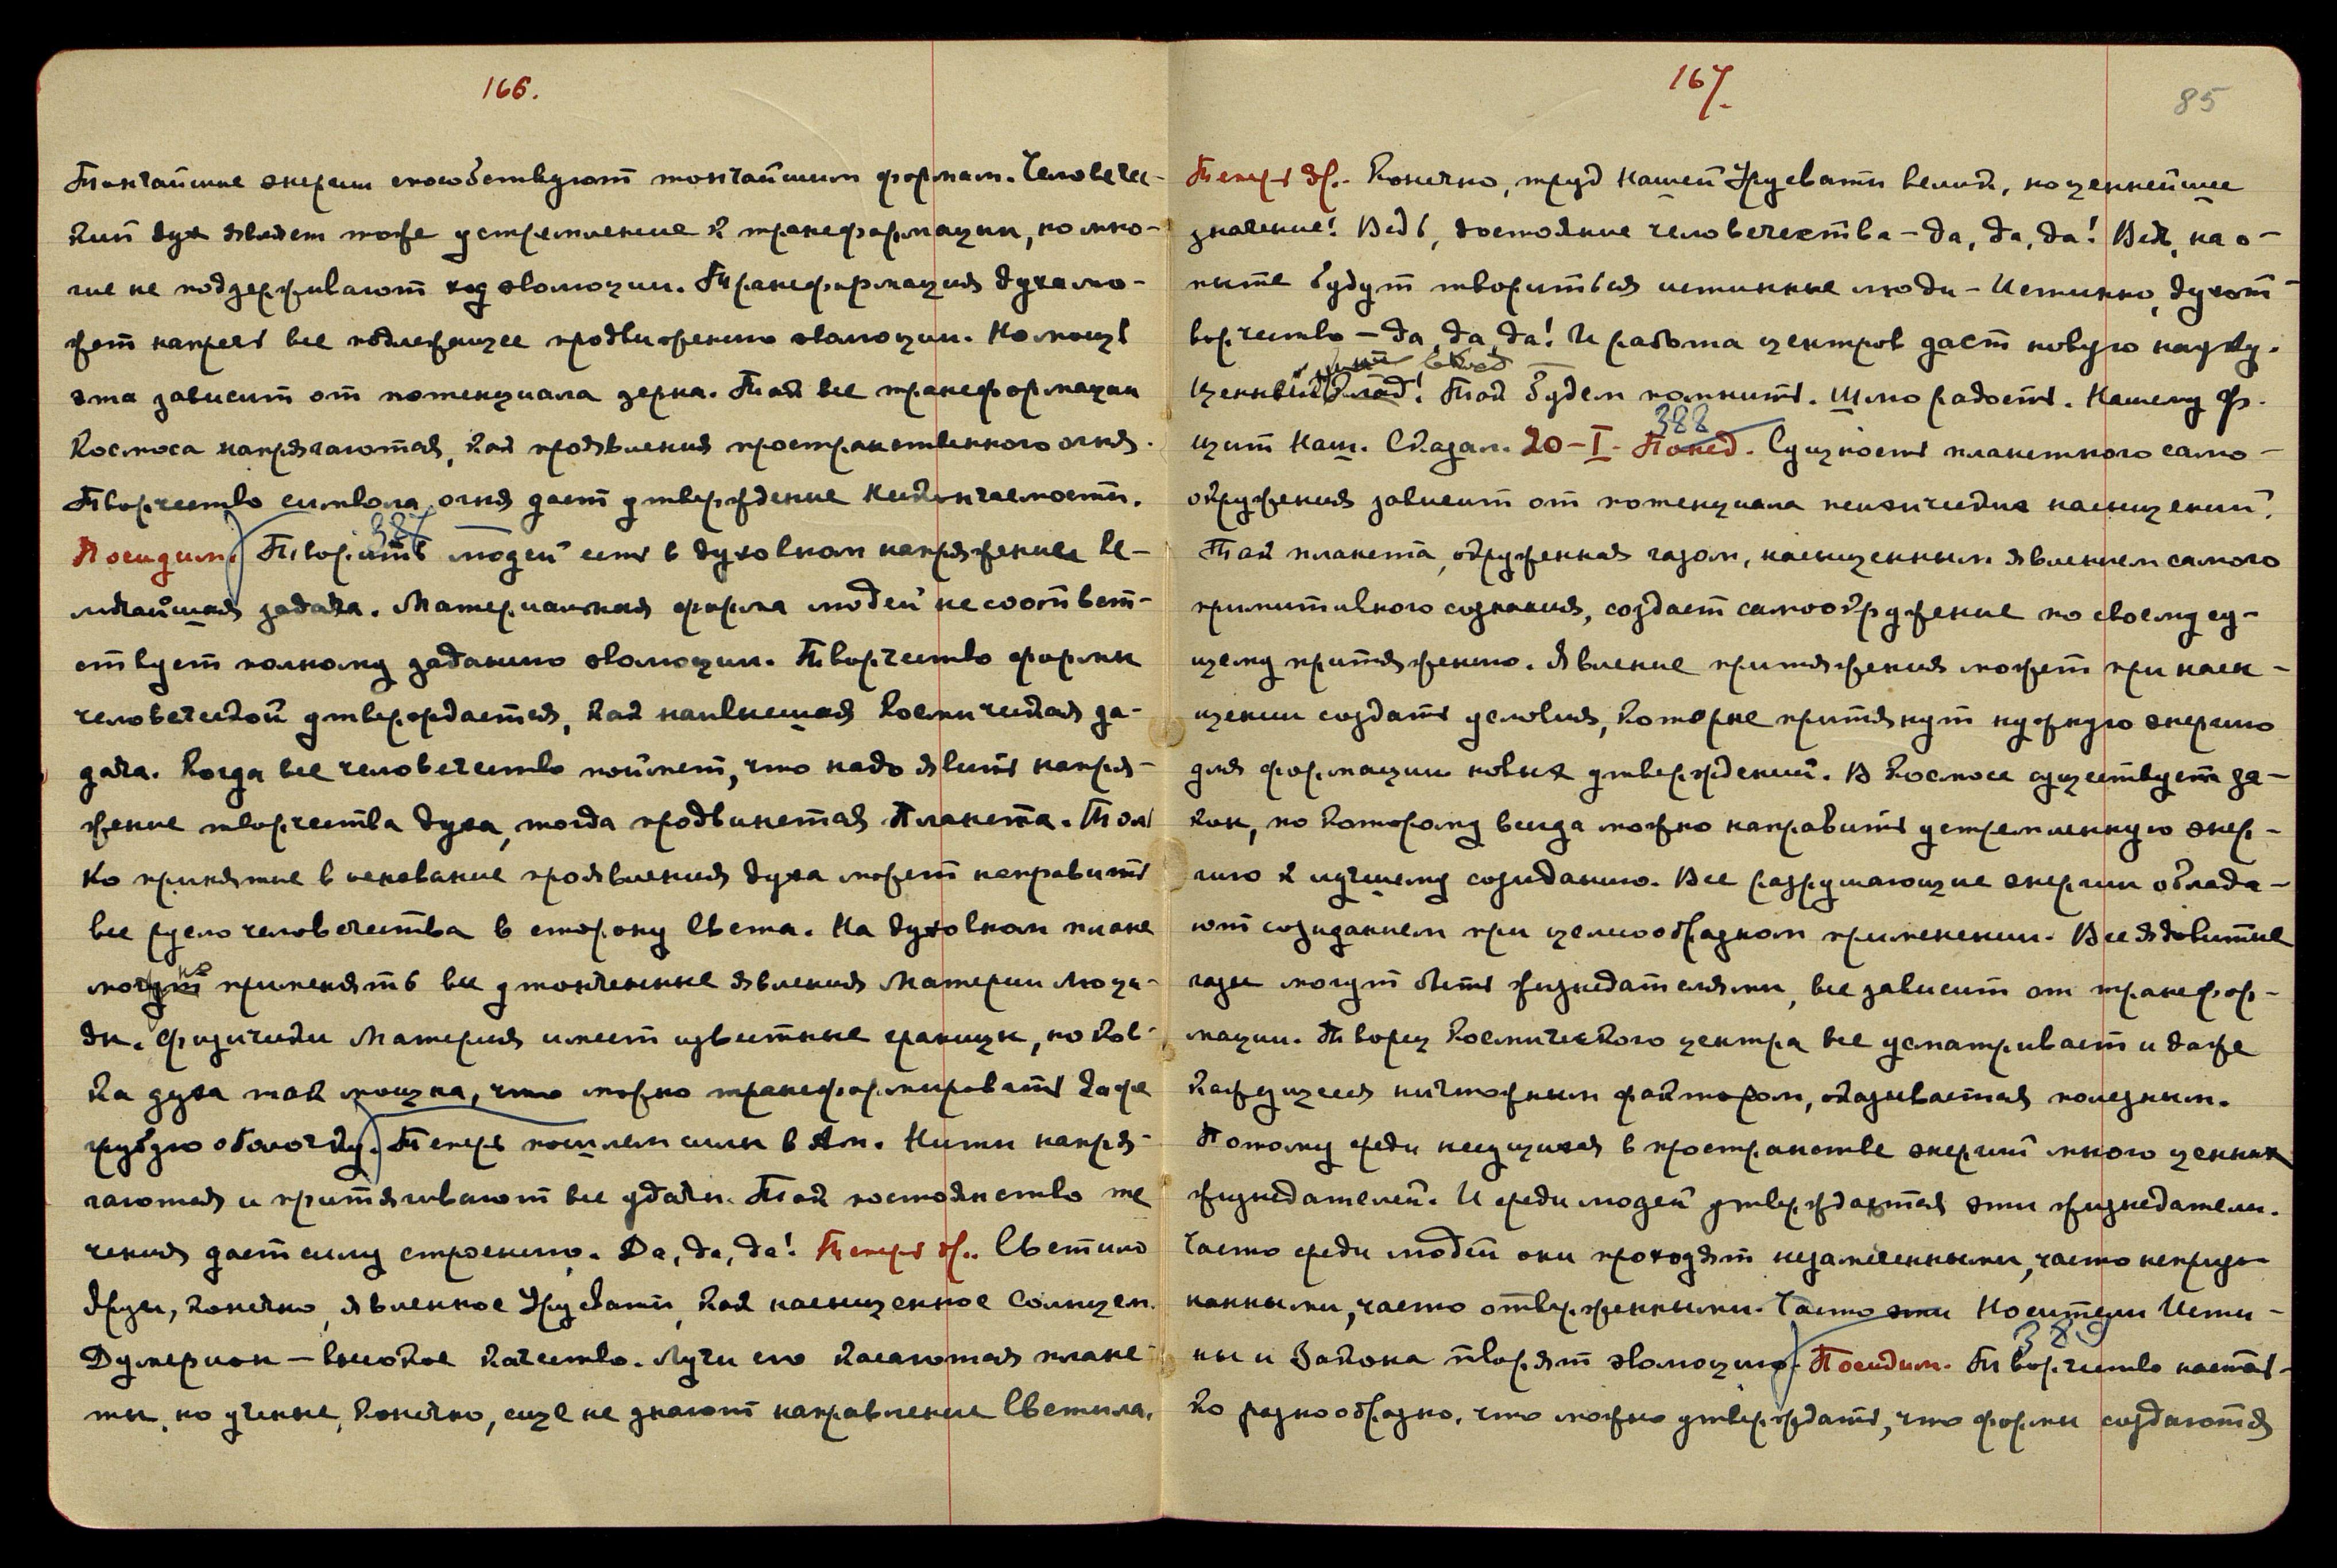 166.
Тончайшие энергии способствуют тончайшим формам. Человечес-
кий дух являет тоже устремление к трансформации, но мно-
гие не поддерживают ход эволюции. Трансформация духа мо-
жет напречь все подлежащее продвижению эволюции. Но мощь
эта зависит от потенциала зерна. Так все трансформации
Космоса напрягаются, как проявления пространственного огня.
Творчество символа огня дает утверждение Нескончаемости.
387
Посидим. Творить людей есть в духовном напряжении Ве-
личайшая задача. Материальная форма людей не соответ-
ствует полному заданию эволюции. Творчество формы
человеческой утверждается, как наивысшая Космическая за-
дача. Когда все человечество поймет, что надо явить напря-
жение творчества духа, тогда продвинется Планета. Толь
ко принятие в основание проявления духа может направить
все русло человечества в сторону Света. На духовном плане
можно применять все утонченные явления Материи Люци-
ды. Физически Материя имеет известные границы, но ков-
ка духа так мощна, что можно трансформировать даже
грубую оболочку. Теперь пошлем силы в Ам. Нити напря-
гаются и притягивают все удачи. Так постоянство те
чения дает силу строению. Да, да, да! Теперь др. Светило
Друзы, конечно, явленное Урусвати, как насыщенное Солнцем.
Думерион – высокое качество. Лучи его касаются плане-
ты, но ученые, конечно, еще не знают направление Светила.
167.
85
Теперь др. Конечно, труд нашей Урусвати велик, но ценнейшее
значение! Ведь, достояние человечества – да, да, да! Ведь, на о-
пыте будут твориться истинные люди – Истинно, духот-
ворчество – да, да, да! И работа центров даст новую науку.
Ценный вклад! Так будем помнить. Шлю радость. Нашему Ф.
388
щит Наш. Сказал. 20–I– Понед. Сущность планетного само-
окружения зависит от потенциала психических насыщений.
Так планета, окруженная газом, насыщенным явлением самого
примитивного сознания, создает самоокружение по своему су-
щему притяжению. Явление притяжения может при насы-
щении создать условия, которые притянут нужную энергию
для формации новых утверждений. В Космосе существует за-
кон, по которому всегда можно направить устремленную энер-
гию к лучшему созиданию. Все разрушающие энергии облада-
ют созиданием при целесообразном применении. Все ядовитые
газы могут быть жизнедателями, все зависит от трансфор-
мации. Творец Космического центра все усматривает и даже
кажущееся ничтожным фактором, оказывается полезным.
Потому среди несущихся в пространстве энергий много ценных
жизнедателей. И среди людей утверждаются эти жизнедатели.
Часто среди людей они проходят незамеченными, часто непризн
нанными, часто отверженными. Часто эти Носители Исти-
389
ны и Закона творят эволюцию. Посидим. Творчество настоль-
ко разнообразно, что можно утверждать, что формы создаются